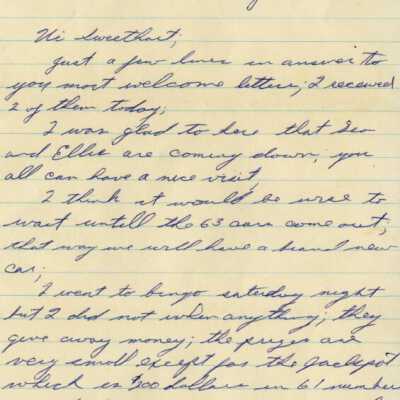 Hi sweethart;
just a few lines in answer to
you most welcome letters; I received
2 of them today;
I was glad to here that Geo
and Ellie are coming down, you
all can have a nice visit,
I think it would be wise to
wait untill the 63 cars come out,
that way we will have a brand new
car;
I went to bingo saterday night
but I did not when anything; they
give away money; the prizes are
very small except for the Jackpot
which is $300 dollars in 61 number